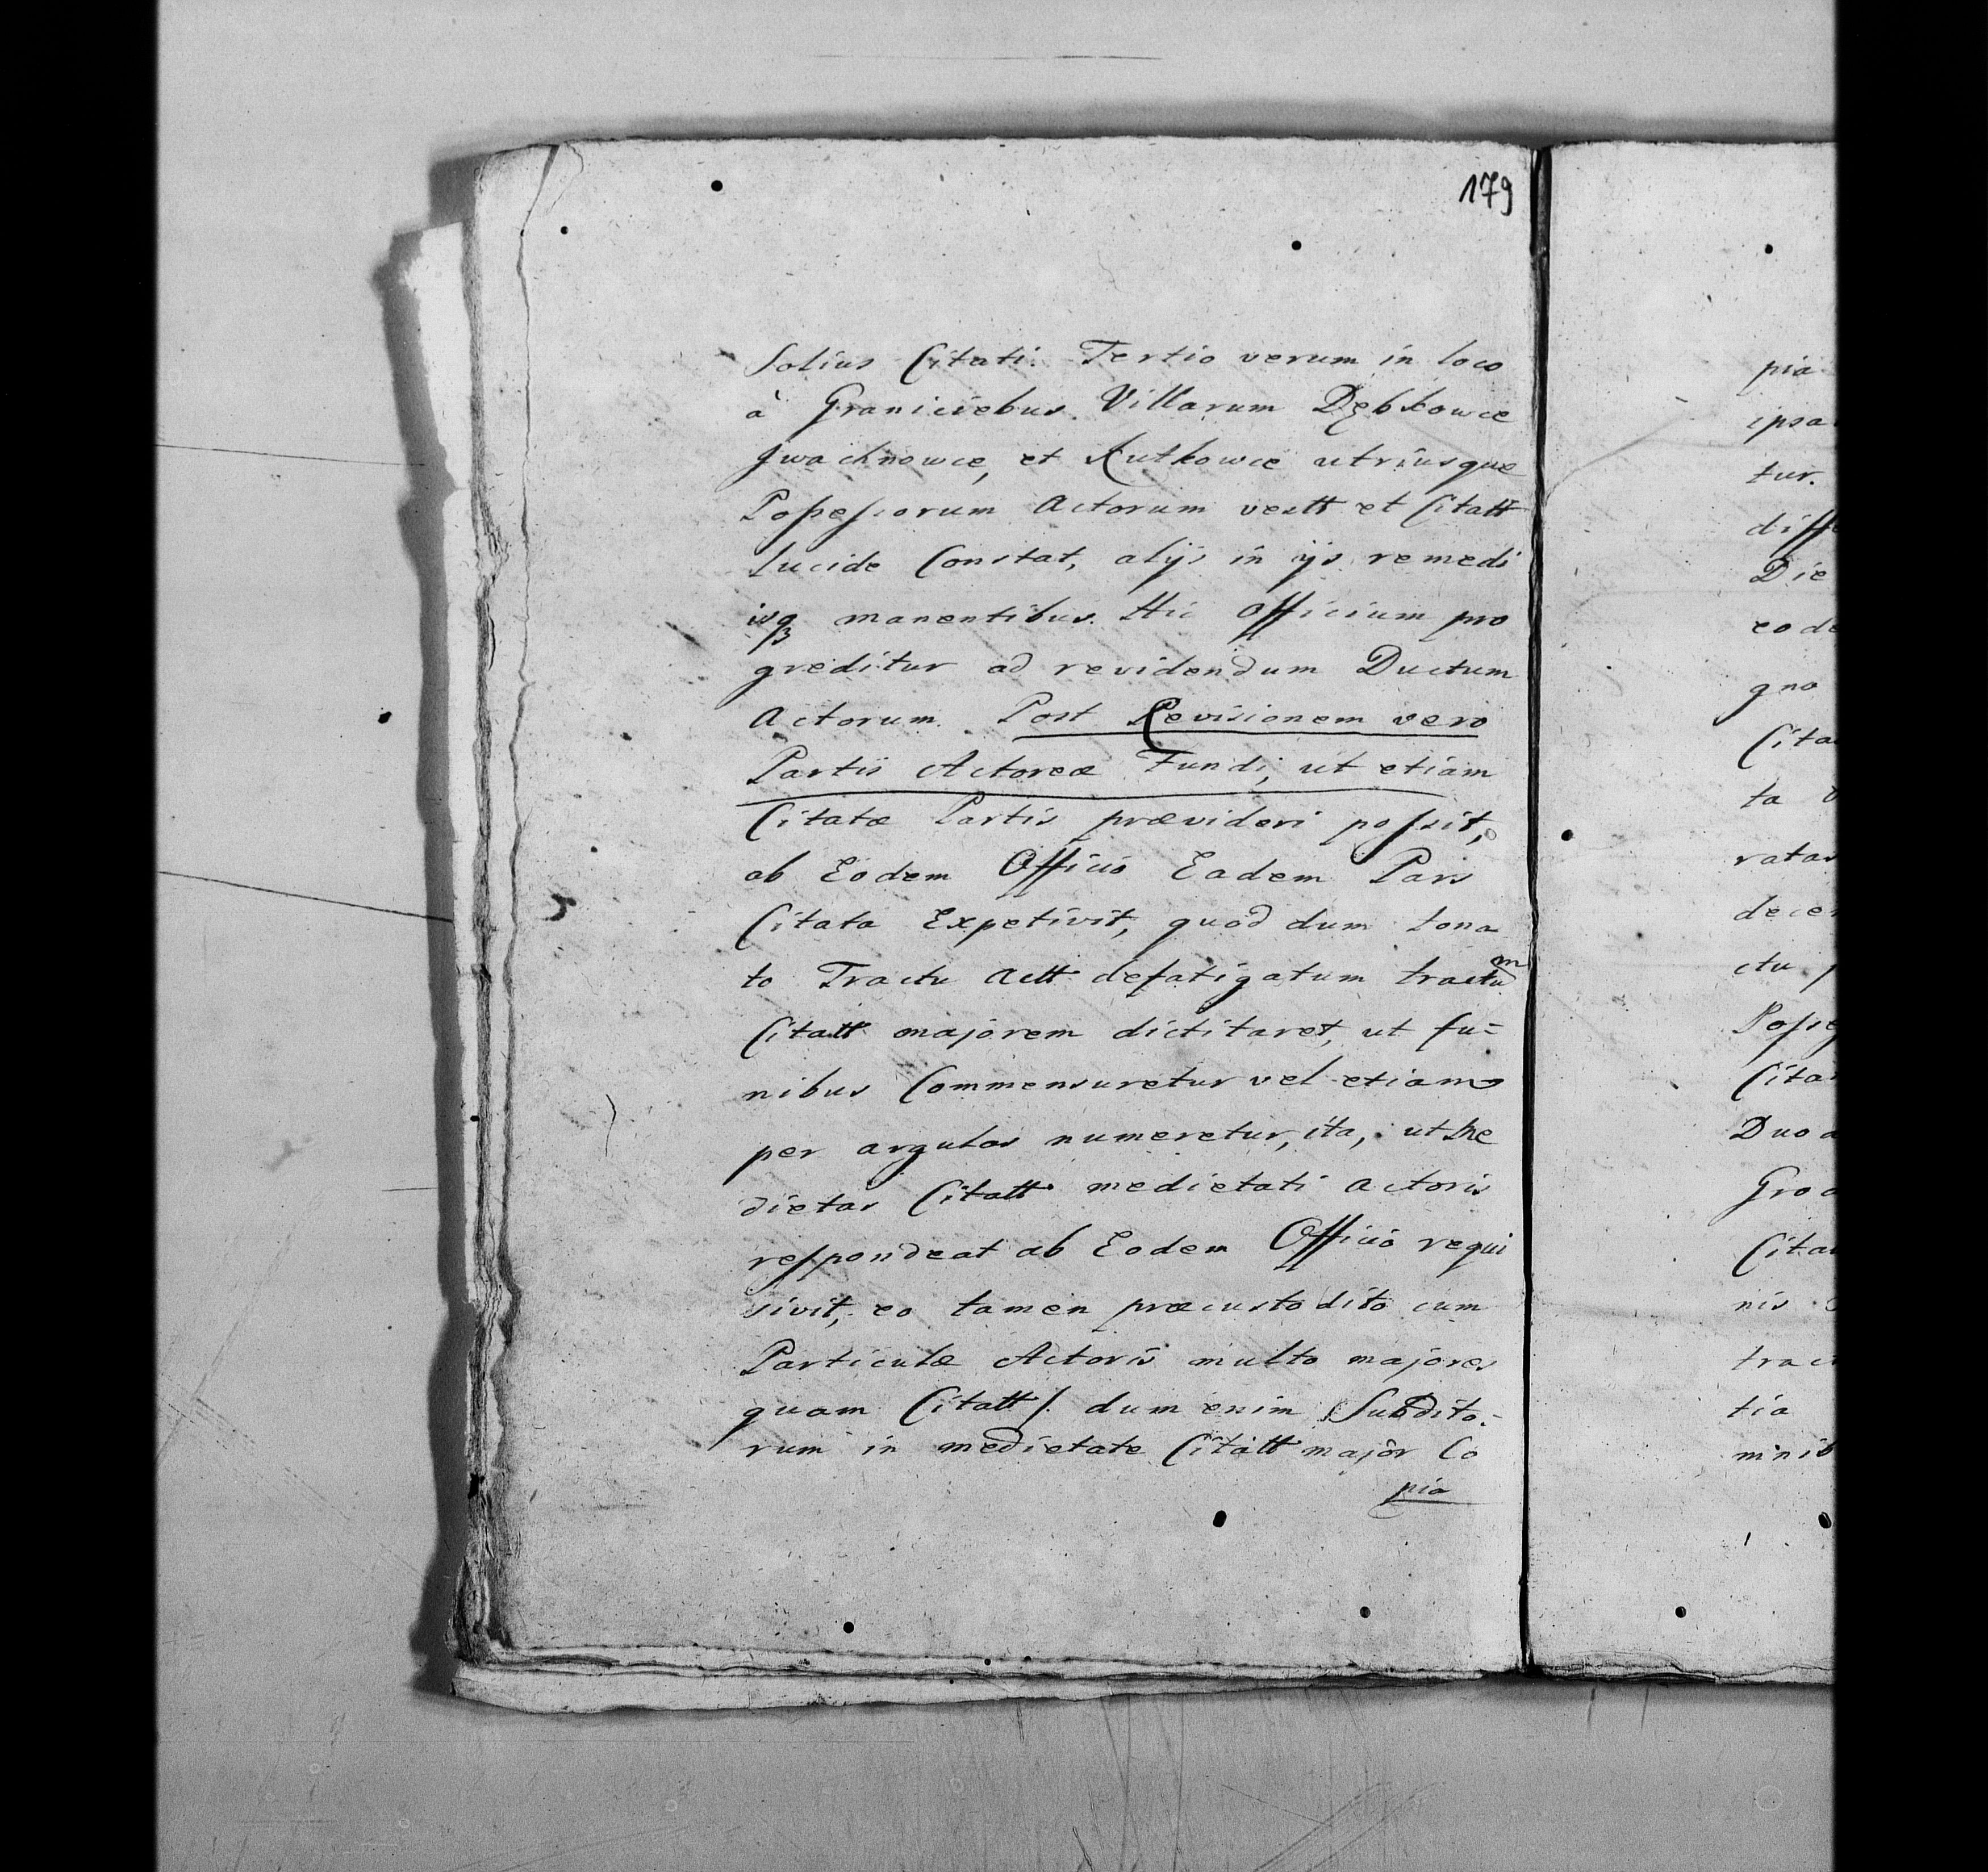 179
Solius Citati. Tertio verum in loco
à Graniciebus Villarum Dębkowce
Jwachnowce, et Rutkowce utriusque
Possessorum Actorum vestt et Citatt
lucide Constat, alijs in ijs remedi
isq manentibus. Hic Officium pro
greditur ad revidendum Ductum
Actorum. Post Revisionem vero
Partis Actoreæ Fundi, ut etiam
Citatæ Partis prævideri possit,
ab Eodem Officio Eadem Pars
Citata Expetivit, quod dum
to Tractu Actt defatigatum tractum
Citatt majorem dictitaret, ut fu=
nibus Commensuretur vel etiam
per argulos numeretur, ita, ut Me
dietas Citatt medietati Actoris
respondeat ab Eodem Officio requi
sivit, eo tamen præcustodito cum
Particulæ Actoris multo majores
quam Citatt /. dum enim Subdito=
rum in medietate Citatt major Co
pia
pia
ipsa
tur.
diffe
Die
eode
gno
Cita
ta
ratas
decer
ctu
Posse
Cita
Duo
Gro
Cita
nis
trac
tia
minib